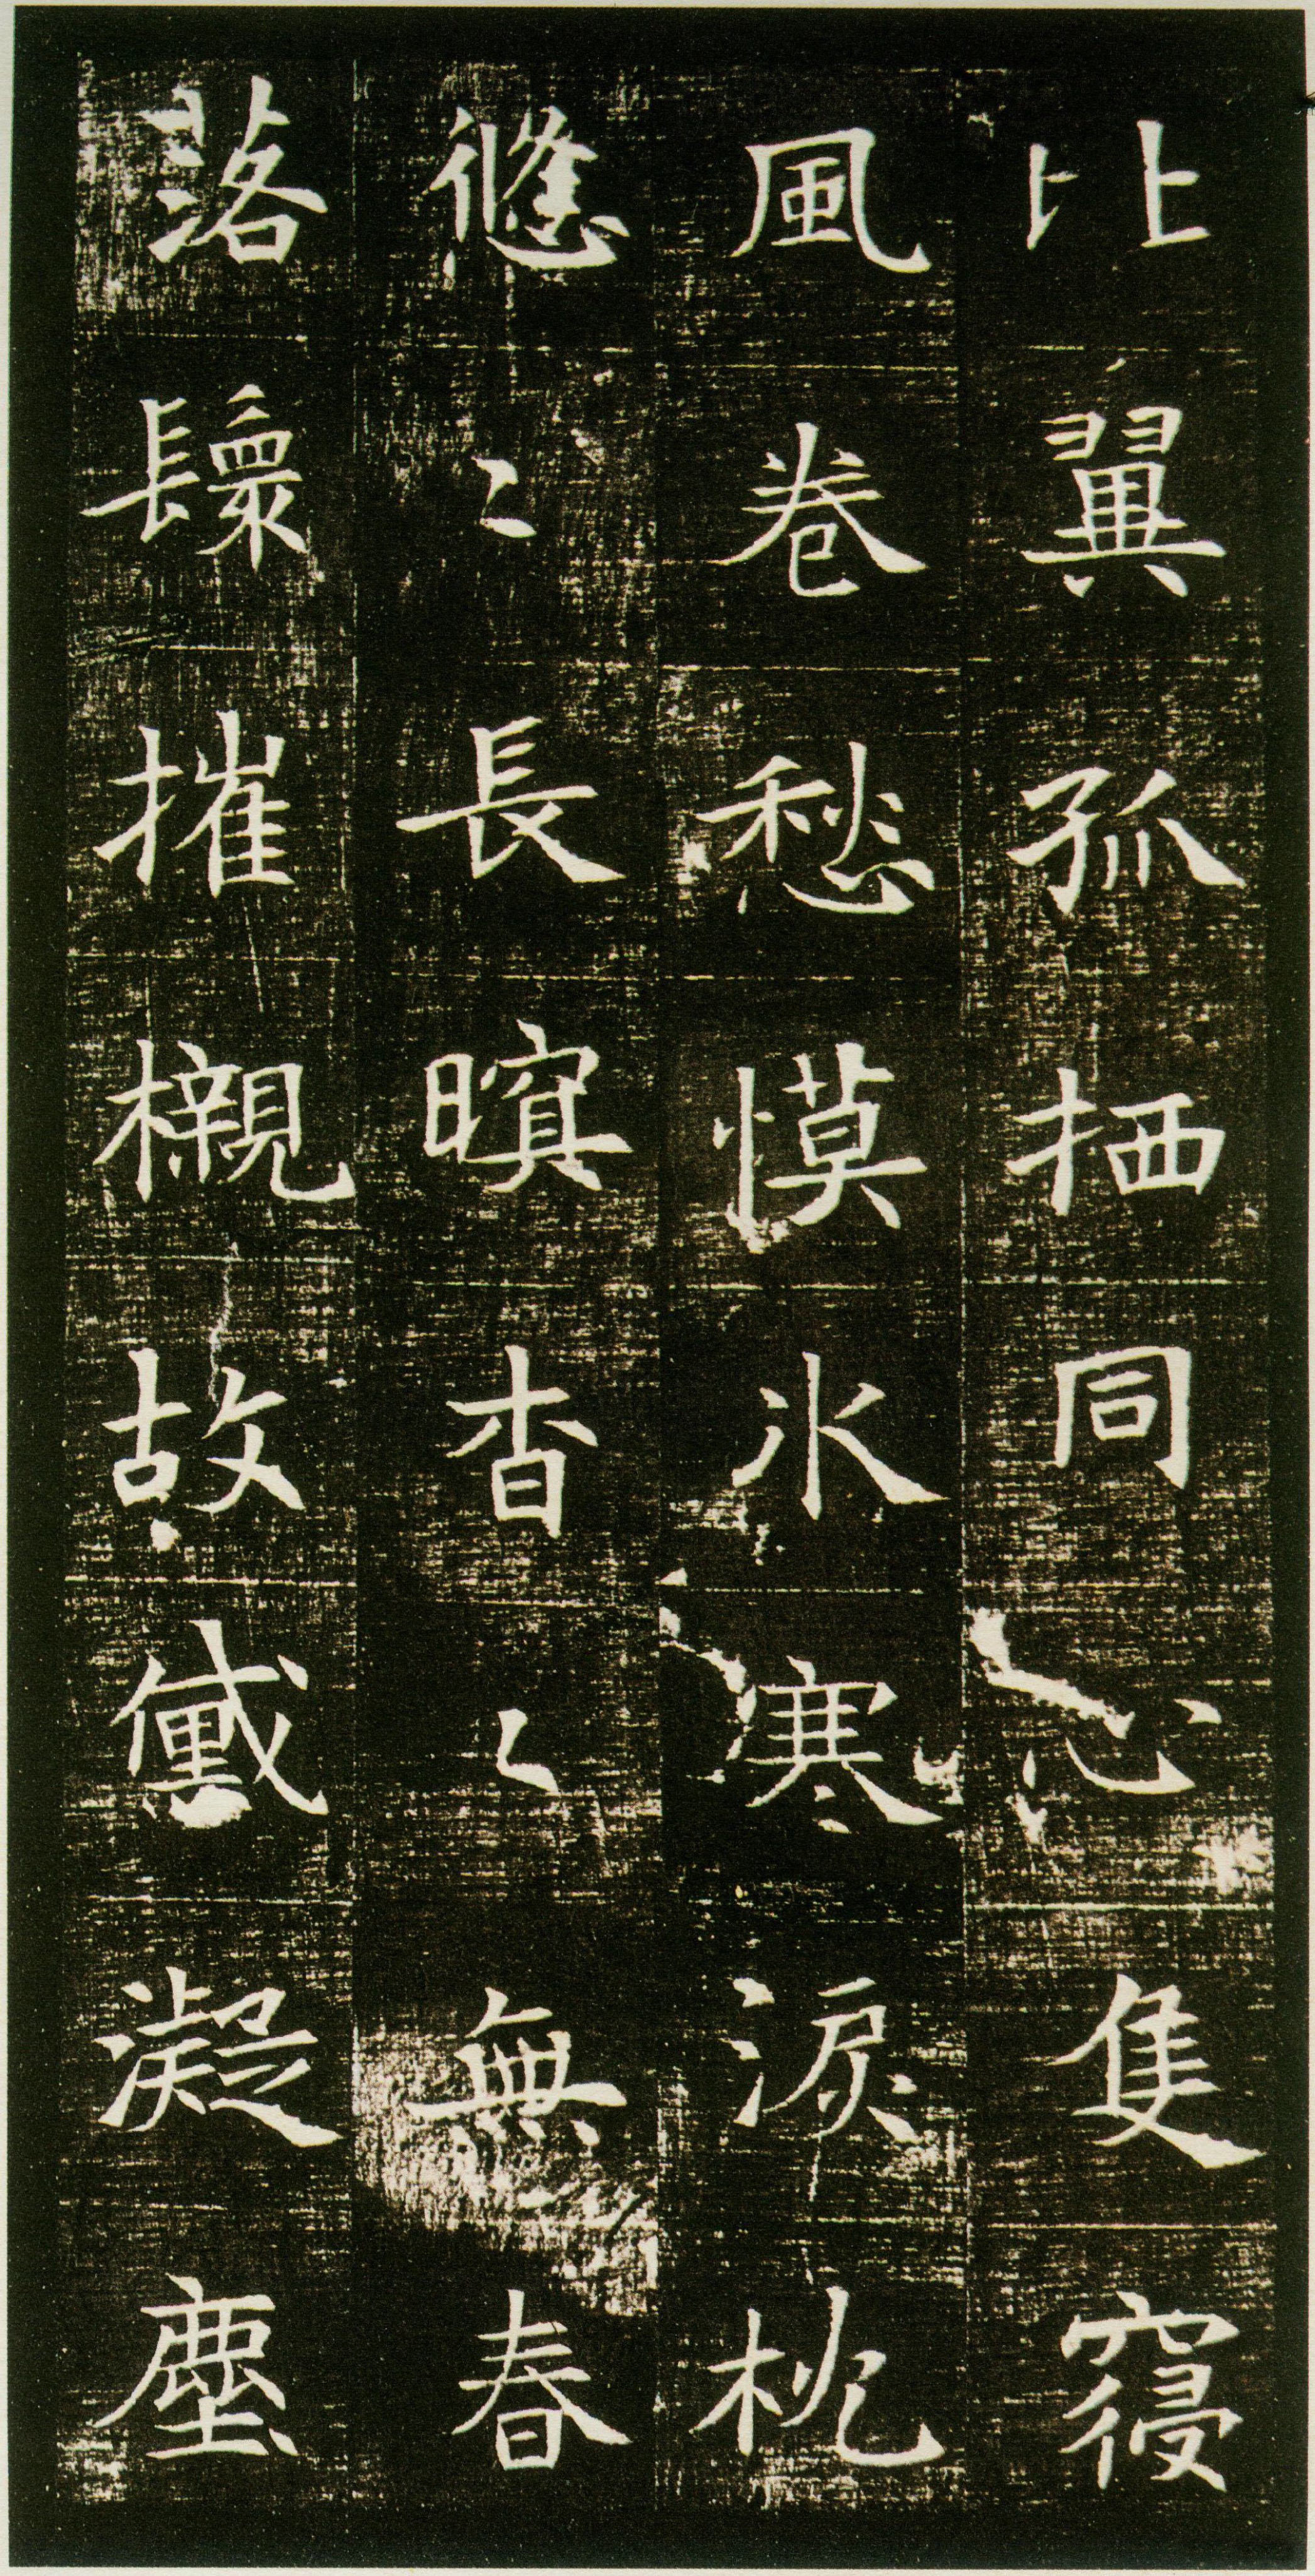 比翼孤栖同心隻寑
風卷愁慔氷寒淚枕
悠〻長暝杳〻無春
落鬟摧櫬故黛凝塵